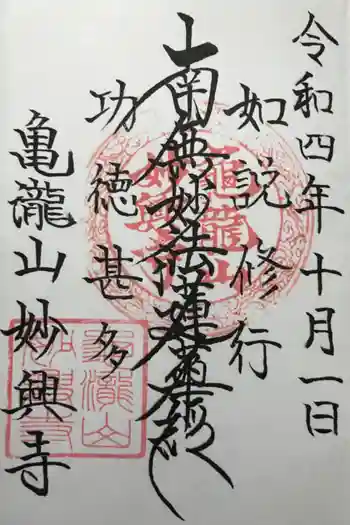 令和四年十月一日
如説修行
南無妙法蓮華経
功徳甚多
亀瀧山妙興寺